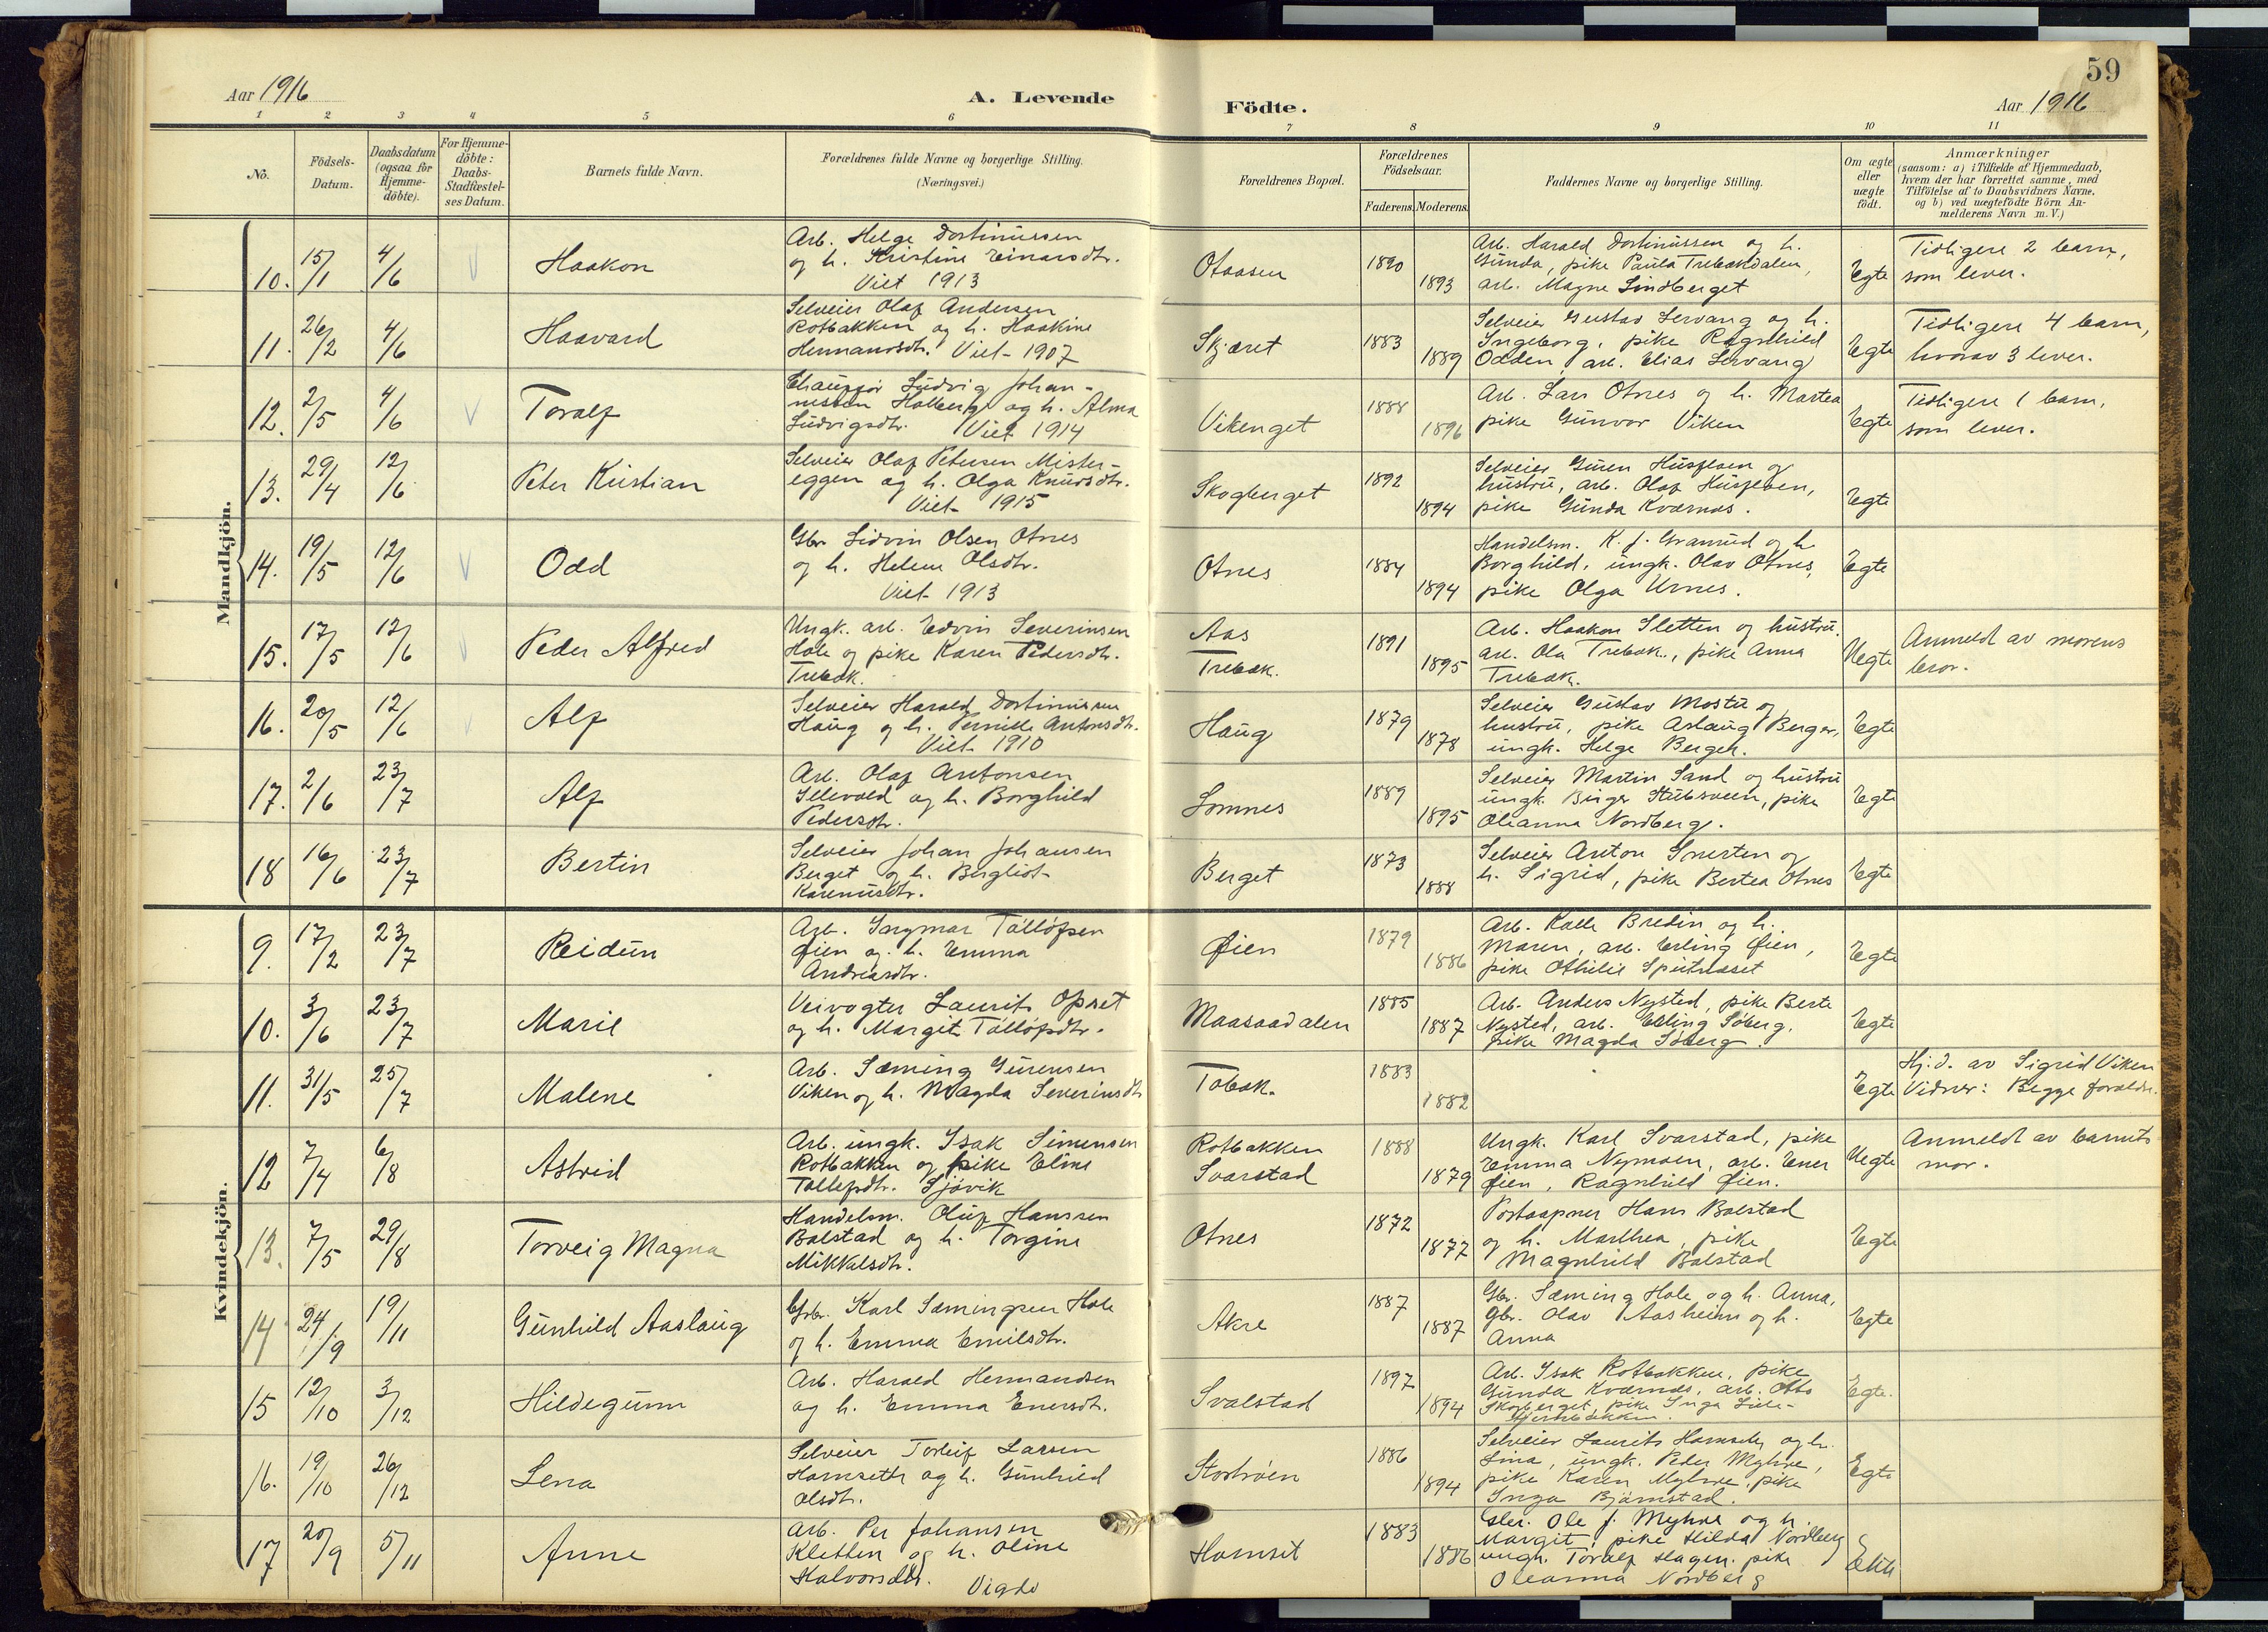 59
Aar 1916
A. Levende
Födte.
Aar 1916
1 2 3 4 5 6 7 8 9 10 11
No.
Födsels-
Datum.
Daabsdatum
(ogsaa for
Hjemme-
döbte).
For Hjemme-
döbte:
Daabs-
Stadfæstel-
ses Datum.
Barnets fulde Navn.
Forældrenes fulde Navne og borgerlige Stilling.
(Næringsvei.)
Forældrenes Bopæl.
Forældrenes
Födselsaar.
Faderens. Moderens.
Faddernes Navne og borgerlige Stilling.
Om ægte
eller
uægte
födt.
Anmærkninger
(saasom: a) i Tilfælde af Hjemmedaab,
hvem der har forrettet samme, med
Tilföielse af to Daabsvidners Navne,
og b) ved uægtefödte Börn An-
melderens Navn m. V.)
Mandkjön.
10. 15/1 4/6 Haakon
Arb. Helge Dortinussen
og h. Kristine Einarsdtr.
Viet 1913
Otaasen 1890 1893
Arb. Harald Dortinussen og h.
Gunda, pike Paula Trebækdalen,
arb. Magne Lindberget
Egte
Tidligere 2 barn,
som lever.
11. 26/2 4/6 Haavard
Selveier Olaf Andersen
Rotbakken og h. Haakine
Hermansdtr. Viet 1907
Skjæret 1883 1889
Selveier Gustav Lervang og h.
Ingeborg, pike Ragnhild
Odden, arb. Elias Lervang
Egte
Tidligere 4 barn,
hvorav 3 lever.
12. 2/5 4/6 Toralf
Chauffør Ludvig Johan-
nessen Holberg og h. Alma
Ludvigsdtr. Viet 1914
Vikenget 1888 1896
Arb. Lars Otnes og h. Martea
pike Gunvor Viken
Egte
Tidligere 1 barn,
som lever.
13. 29/4 12/6 Peter Kristian
Selveier Olaf Petersen Mister-
eggen og h. Olga Knudsdtr.
Viet 1915
Skogberget 1892 1894
Selveier Guren Husfloen og
hustru, arb. Olaf Husfloen,
pike Gunda Kværnes.
Egte
14. 19/5 12/6 Odd
Gbr Sidvin Olsen Otnes
og h. Helene Olsdtr.
Viet 1913
Otnes 1884 1894
Handelsm. K. J. Granrud og h
Borghild, ungk. Olav Otnes,
pike Olga Urnes.
Egte
15. 17/5 12/6 Peder Alfred
Ungk. arb. Edvin Severinsen
Hole og pike Karen Pedersdtr.
Trebæk.
Aas
Trebæk. 1891 1895
Arb. Haakon Sletten og hustru,
arb. Ola Trebæk, pike Anna
Trebæk.
Uegte
Anmeldt av morens
bror.
16. 20/5 12/6 Alf
Selveier Harald Dortinussen
Haug og h. Pernille Antonsdtr.
Viet 1910
Haug 1879 1878
Selveier Gustav Mostu og
hustru, pike Aslaug Berger,
ungk. Helge Berget.
Egte
17. 2/6 23/7 Alf
Arb. Olaf Antonsen
Illevold og h. Borghild
Pedersdtr.
Lomnes 1889 1895
Selveier Martin Sand og hustru
ungk. Birger Stubsveen, pike
Oleanna Nordberg.
Egte
18 16/6 23/7 Bertin
Selveier Johan Johansen
Berget og h. Bergliot
Karenusdtr.
Berget 1873 1888
Selveier Anton Snerten og
h. Sigrid, pike Bertea Otnes
Egte
Kvindekjön.
9. 17/2 23/7 Reidun
Arb. Ingmar Tollofsen
Øien og h. Emma
Andreasdtr.
Øien 1879 1886
Arb. Kalle Bredin og h.
Maren, arb. Erling Øien,
pike Othilie
Egte
10. 3/6 23/7 Marie
Veivogter Laurits Opset
og h. Margit Tollofsdtr.
Maasaadalen 1885 1887
Arb. Anders Nysted, pike Berte
Nysted, arb. Erling Søberg,
pike Magda Søberg.
Egte
11. 31/5 25/7 Malene
Arb. Sæming Gurensen
Viken og h. Magda Severinsdtr
Tobæk. 1883 1882
Egte
Hj.d. av Sigrid Viken
Vidner: Begge foreldr.
12 7/4 6/8 Astrid
Arb. ungk. Isak Simensen
Rotbakken og pike Eline
Tollefsdtr. Sjøvik
Rotbakken
Svarstad 1888 1879
Ungk. Karl Svarstad, pike
Emma Nymoen, arb. Ener
Øien, Ragnhild Øien.
Uegte
Anmeldt av barnets
mor.
13. 7/5 29/8 Torveig Magna
Handelsm. Oluf Hanssen
Bolstad og h. Torgine
Mikkalsdtr.
Otnes 1872 1877
Postaapner Hans Bolstad
og h. Marthea, pike
Magnhild Bolstad
Egte
14 24/9 19/11 Gunhild Aaslaug
Gbr. Karl Sæmingsen Hole
og h. Emma Emilsdtr.
Akre 1887 1887
Gbr. Sæming Hole og h. Anna,
Gbr. Olav Aasheim og h.
Anna
Egte
15 12/10 3/12 Hildegunn
Arb. Harald Hermandsen
og h. Emma Enersdtr.
Svalstad 1897 1894
Arb. Isak Rotbakken, pike
Gunda Kværnes, arb. Otto
Skogberget, pike Inga
Egte.
16. 19/10 26/12 Lena
Selveier Torleif Larsen
Harnseth og h. Gunhild
Olsdtr.
Storhøen 1886 1894
Selveier Laurits Harnseth og h.
Lina, ungk. Peder Myhre,
pike Karen Myhre, pike
Inga Bjørnstad.
Egte
17 20/9 5/11 Anne
Arb. Per Johansen
Kletten og h. Oline
Halvorsdtr. Vigdo
Hornset 1883 1886
Gbr. Ole J. Myhre og h.
Margit, pike Hilda Nordberg
ungk. Toralf Hagen. pike
Oleanna Nordberg
Ekte